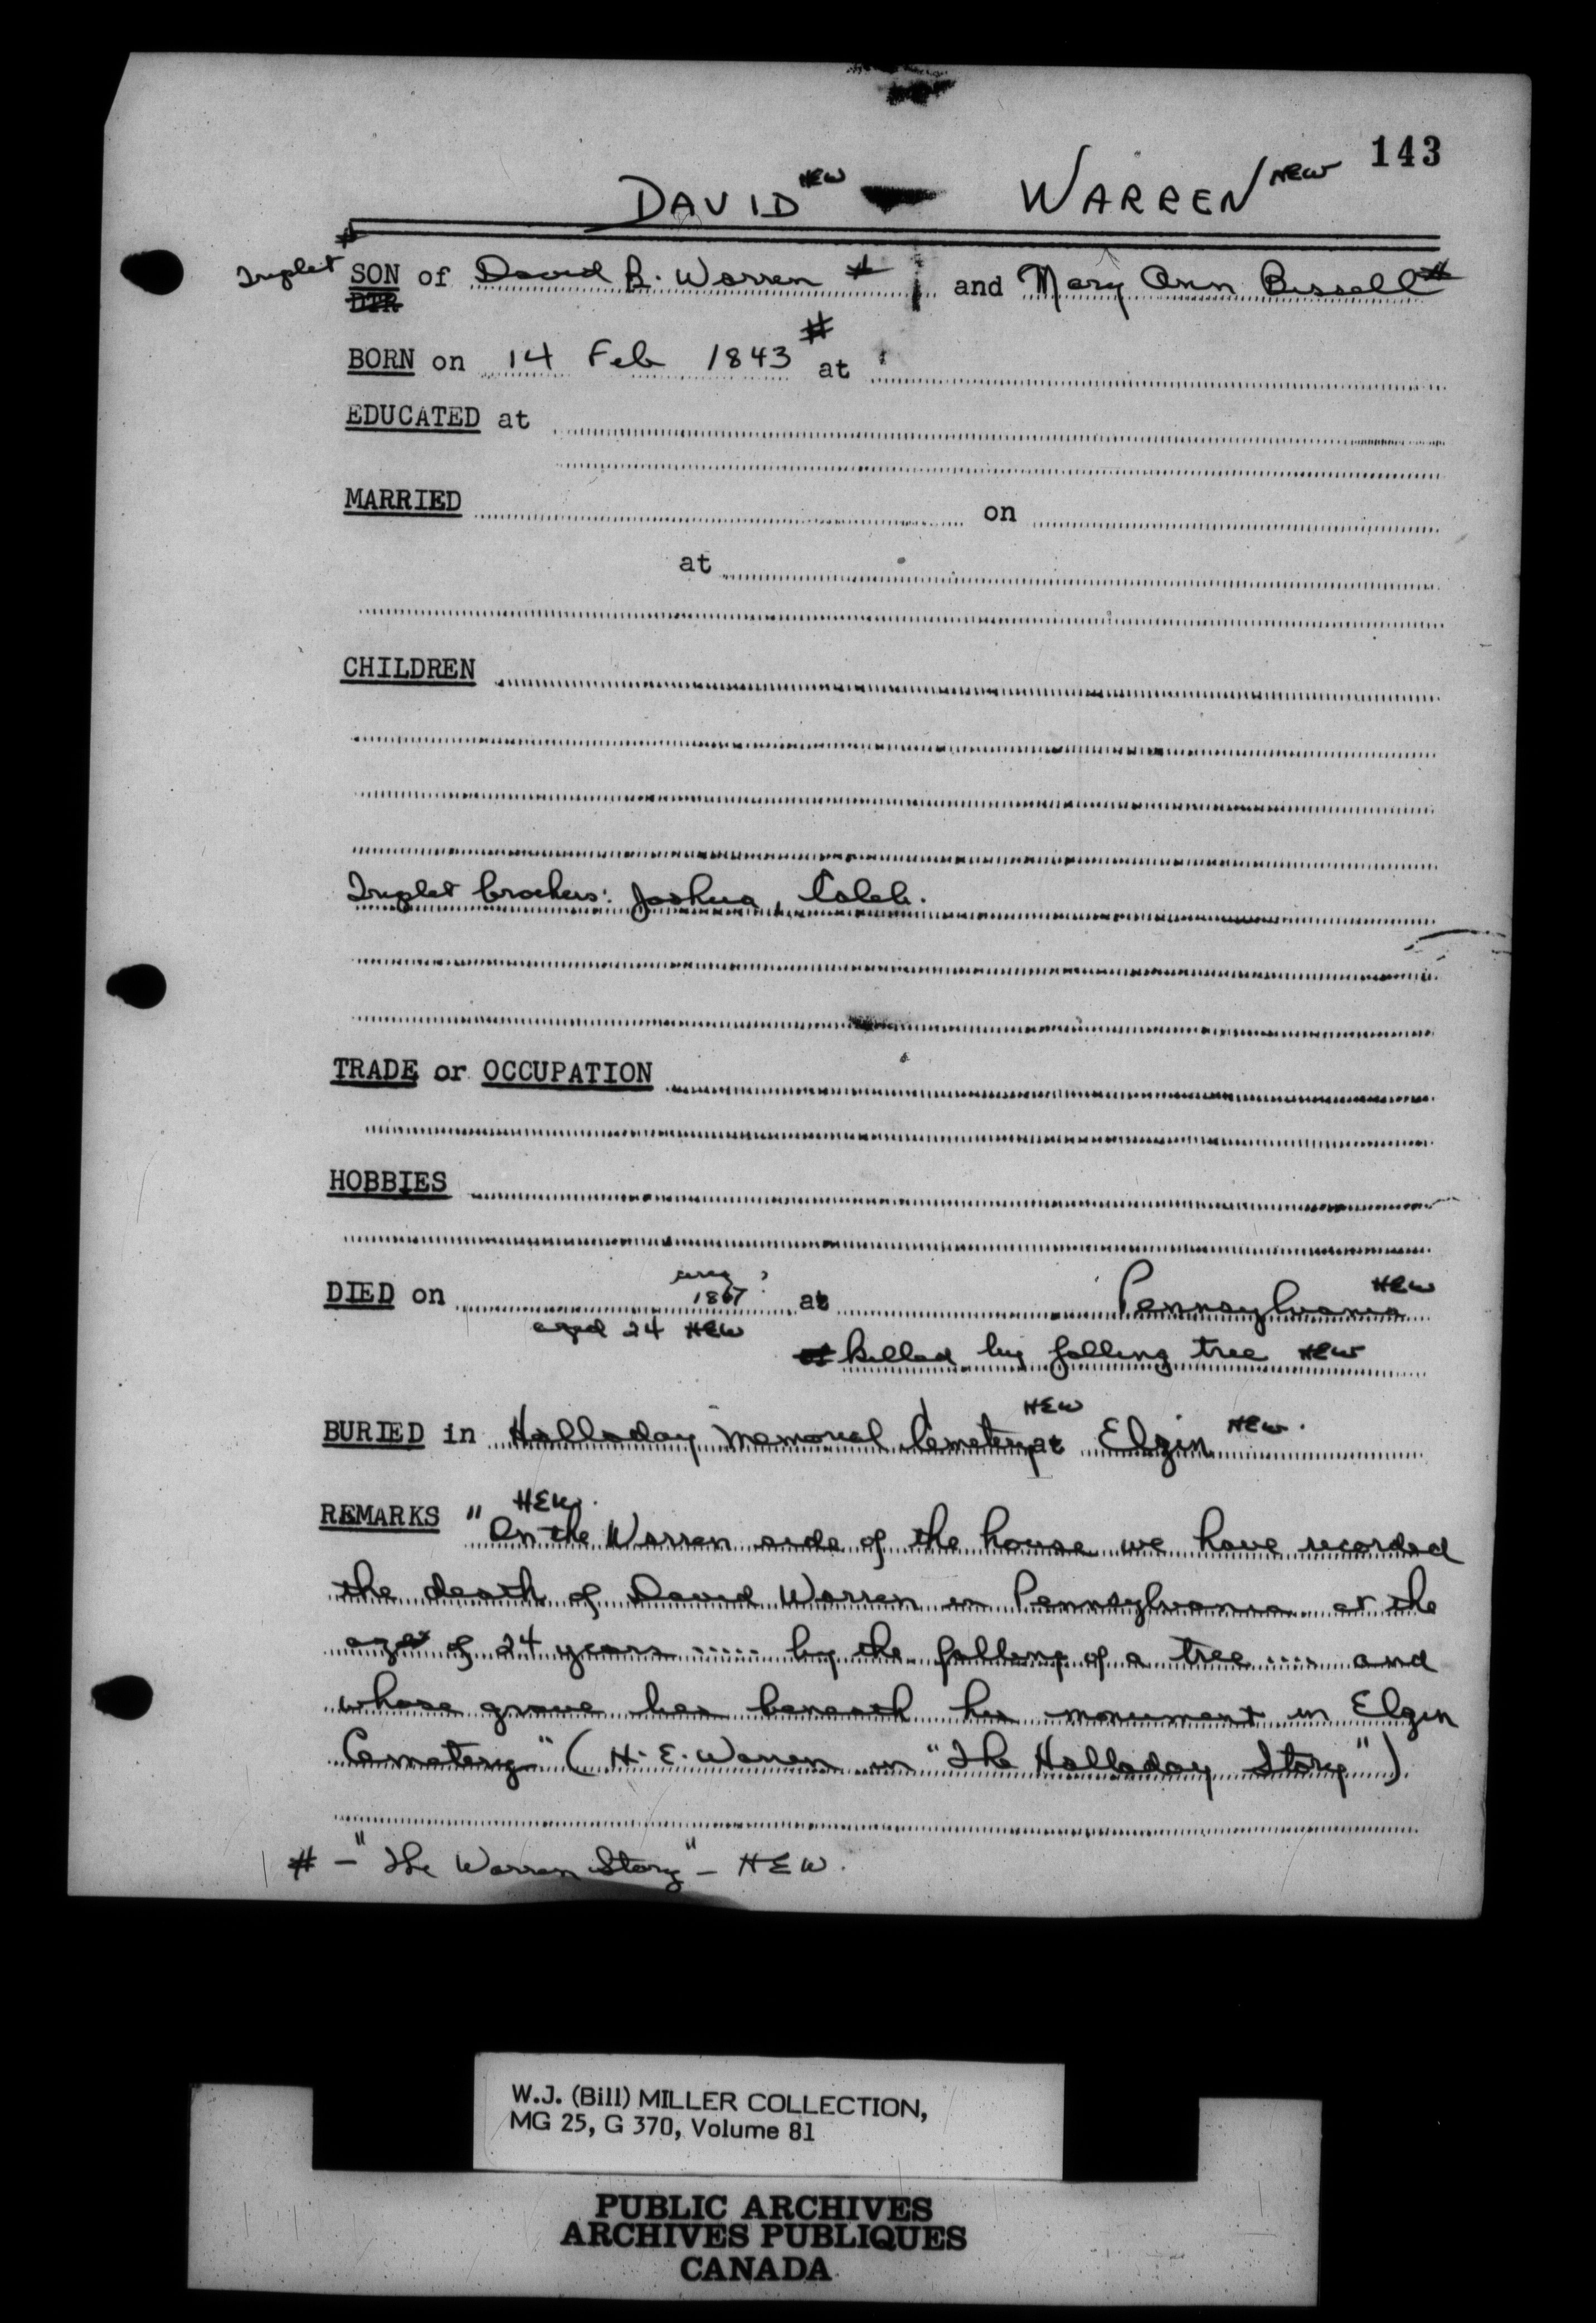 143
DAVID HEW WARREN HEW
#
Triplet SON of David B. Warren # and Mary Ann Bissell #
DTR
BORN on 14 Feb 1843 # at
EDUCATED at
MARRIED on
at
CHILDREN
Triplet brothers: Joshua, Caleb.
TRADE or OCCUPATION
HOBBIES
DIED on circa 1867 at Pennsylvania HEW
aged 24 HEW
killed by falling tree HEW
BURIED in Halladay Memorial Cemetery HEW at Elgin HEW.
REMARKS HEW. "On the Warren side of the house we have recorded
the death of David Warren in Pennsylvania at the
age of 24 years ..... by the falling of a tree .... and
whose grave lies beneath his monument in Elgin
Cemetery" (H. E. Warren in "The Halladay Story")
# - "The Warren Story" - HEW.
W.J. (Bill) MILLER COLLECTION,
MG 25, G 370, Volume 81
PUBLIC ARCHIVES
ARCHIVES PUBLIQUES
CANADA